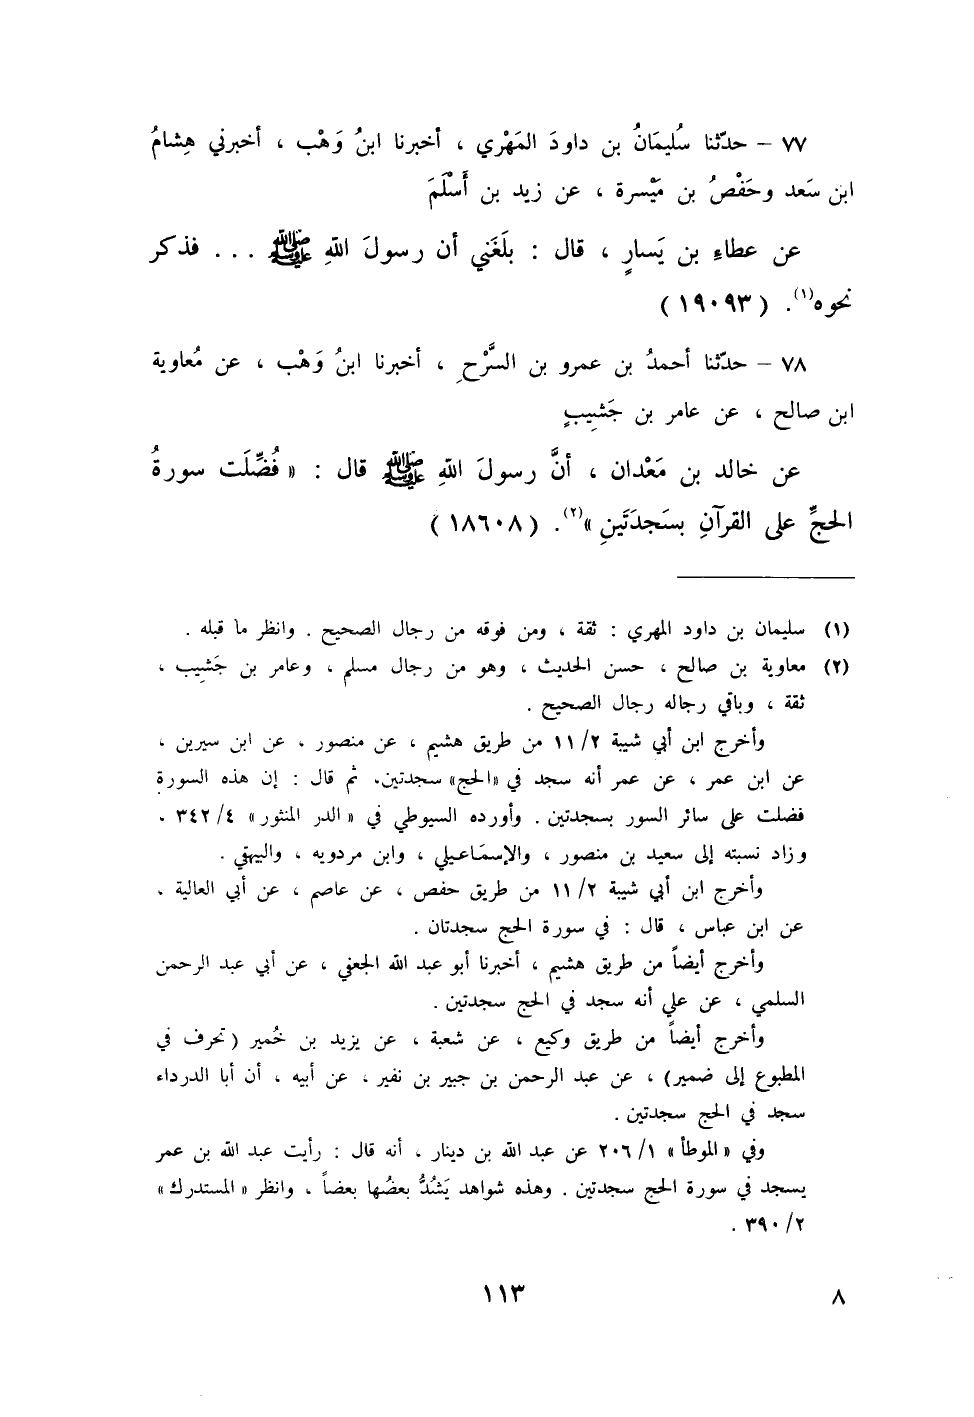 ٧٧ - حدّثنا سُليمَانُ بن داودَ المَهْري ، أخبرنا ابنُ وَهْب ، أخبرني هِشامُ
ابن سَعد وحَفْصُ بن مَيْسرة ، عن زيد بن أَسْلَمَ
عن عطاءِ بن يَسارٍ ، قال : بلَغَني أن رسولَ اللهِ ﷺ ... فذكر
نحوه(١). (١٩٠٩٣)
٧٨ - حدّثنا أحمدُ بن عمرو بن السَّرْحِ ، أخبرنا ابنُ وَهْب ، عن مُعاوية
ابن صالح ، عن عامر بن جَشِيبٍ
عن خالد بن مَعْدان ، أنَّ رسولَ اللهِ ﷺ قال : « فُضِّلَت سورةُ
الحجِّ على القرآنِ بسَجدَتَينِ »(٢). (١٨٦٠٨)
(١) سليمان بن داود المهري : ثقة ، ومن فوقه من رجال الصحيح . وانظر ما قبله .
(٢) معاوية بن صالح ، حسن الحديث ، وهو من رجال مسلم ، وعامر بن جَشِيب ،
ثقة ، وباقي رجاله رجال الصحيح .
وأخرج ابن أبي شيبة ١١/٢ من طريق هشيم ، عن منصور ، عن ابن سيرين ،
عن ابن عمر ، عن عمر أنه سجد في «الحج» سجدتين، ثم قال : إن هذه السورة
فضلت على سائر السور بسجدتين . وأورده السيوطي في « الدر المنثور » ٣٤٢/٤ ،
وزاد نسبته إلى سعيد بن منصور ، والإسمَاعيلي ، وابن مردويه ، والبيهقي .
وأخرج ابن أبي شيبة ١١/٢ من طريق حفص ، عن عاصم ، عن أبي العالية ،
عن ابن عباس ، قال : في سورة الحج سجدتان .
وأخرج أيضاً من طريق هشيم ، أخبرنا أبو عبد الله الجعفي ، عن أبي عبد الرحمن
السلمي ، عن علي أنه سجد في الحج سجدتين .
وأخرج أيضاً من طريق وكيع ، عن شعبة ، عن يزيد بن خُمير (تحرف في
المطبوع إلى ضمير) ، عن عبد الرحمن بن جبير بن نفير ، عن أبيه ، أن أبا الدرداء
سجد في الحج سجدتين .
وفي « الموطأ » ٢٠٦/١ عن عبد الله بن دينار ، أنه قال : رأيت عبد الله بن عمر
يسجد في سورة الحج سجدتين . وهذه شواهد يَشُدُّ بعضُها بعضاً ، وانظر « المستدرك »
٣٩٠/٢ .
١١٣
٨